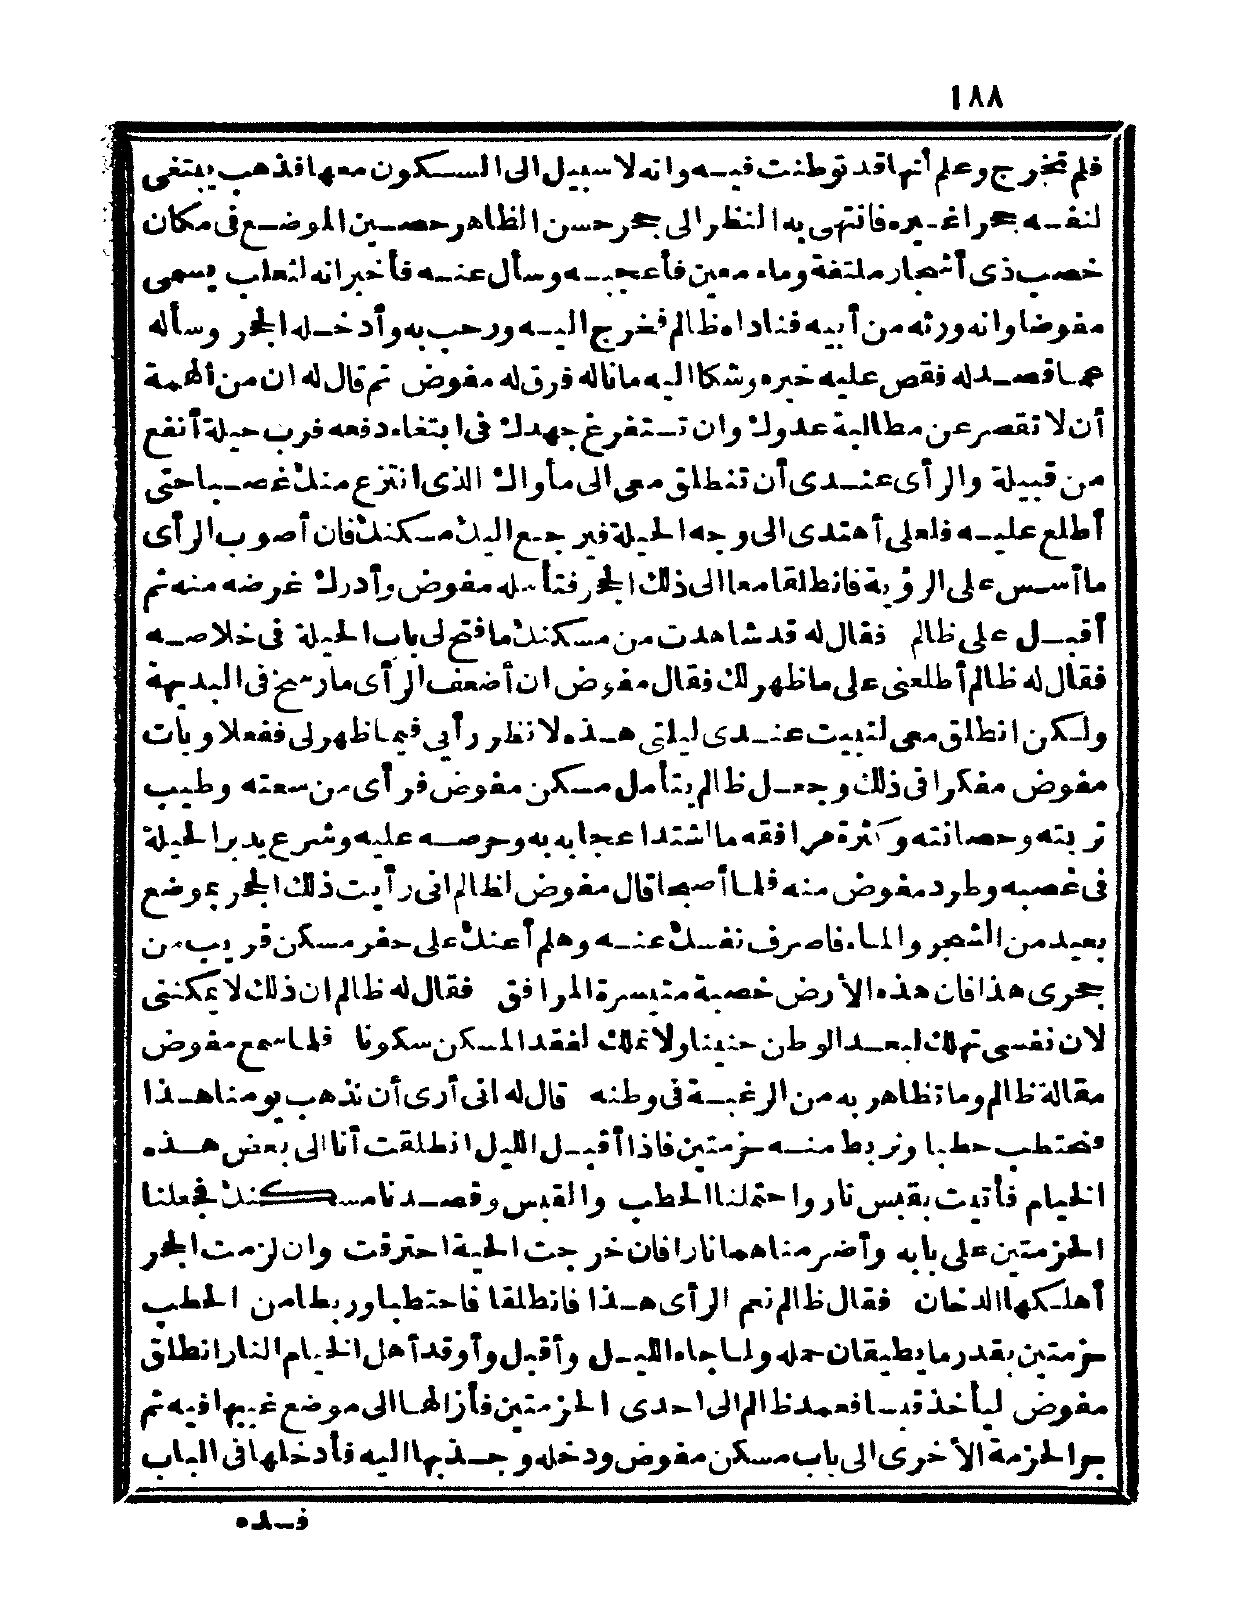 ١٨٨
فلم تخرج وعلم أنها قد توطنت فيه وانه لا سبيل الى السكون معها فذهب يبتغى
لنفسه جحرا غيره فانتهى به النظر الى جحر حسن الظاهر حصين الموضع فى مكان
خصب ذى أشجار ملتفة وماء معين فأعجبه وسأل عنه فأخبر انه لثعلب يسمى
مفوضا وانه ورثه من أبيه فناداه ظالم فخرج اليه ورحب به وأدخله الجحر وسأله
عما قصد له فقص عليه خبره وشكا اليه ما ناله فرق له مفوض ثم قال له ان من الهمة
أن لا تقصر عن مطالبة عدوك وان تستفرغ جهدك فى ابتغاء دفعه فرب حيلة أنفع
من قبيلة والرأى عندى أن تنطلق معى الى مأواك الذى انتزع منك غصبا حتى
أطلع عليه فلعلى أهتدى الى وجه الحيلة فيرجع اليك مسكنك فان أصوب الرأى
ما أسس على الرؤية فانطلقا معا الى ذلك الجحر فتأمله مفوض وأدرك غرضه منه ثم
أقبل على ظالم فقال له قد شاهدت من مسكنك ما فتح لى باب الحيلة فى خلاصه
فقال له ظالم أطلعنى على ما ظهر لك فقال مفوض ان أضعف الرأى ما رسخ فى البديهة
ولكن انطلق معى لتبيت عندى ليلتى هذه لانظر رأيى فيما ظهر لى ففعلا وبات
مفوض مفكرا فى ذلك وجعل ظالم يتأمل مسكن مفوض فرأى من سعته وطيب
تربته وحصانته وكثرة مرافقه ما اشتد اعجابه به وحرصه عليه وشرع يدبر الحيلة
فى غصبه وطرد مفوض منه فلما أصبحا قال مفوض لظالم انى رأيت ذلك الجحر بموضع
بعيد من الشجر والماء فاصرف نفسك عنه وهلم أعنك على حفر مسكن قريب من
جحرى هذا فان هذه الأرض خصبة متيسرة المرافق فقال له ظالم ان ذلك لا يمكننى
لان نفسى تهلك لبعد الوطن حنينا ولا تملك لفقد المسكن سكونا فلما سمع مفوض
مقالة ظالم وما تظاهر به من الرغبة فى وطنه قال له انى أرى أن نذهب يومنا هذا
فنحتطب حطبا ونربط منه حزمتين فاذا أقبل الليل انطلقت أنا الى بعض هذه
الخيام فأتيت بقبس نار واحتملنا الحطب والقبس وقصدنا مسكنك فجعلنا
الحزمتين على بابه وأضرمناهما نارا فان خرجت الحية احترقت وان لزمت الجحر
أهلكها الدخان فقال ظالم نعم الرأى هذا فانطلقا فاحتطبا وربطا من الحطب
حزمتين بقدر ما يطيقان حمله ولما جاء الليل وأقبل وأوقد أهل الخيام النار انطلق
مفوض ليأخذ قبسا فعمد ظالم الى احدى الحزمتين فأزالها الى موضع غيبها فيه ثم
جر الحزمة الأخرى الى باب مسكن مفوض ودخله وجذبها اليه فأدخلها فى الباب
فسده